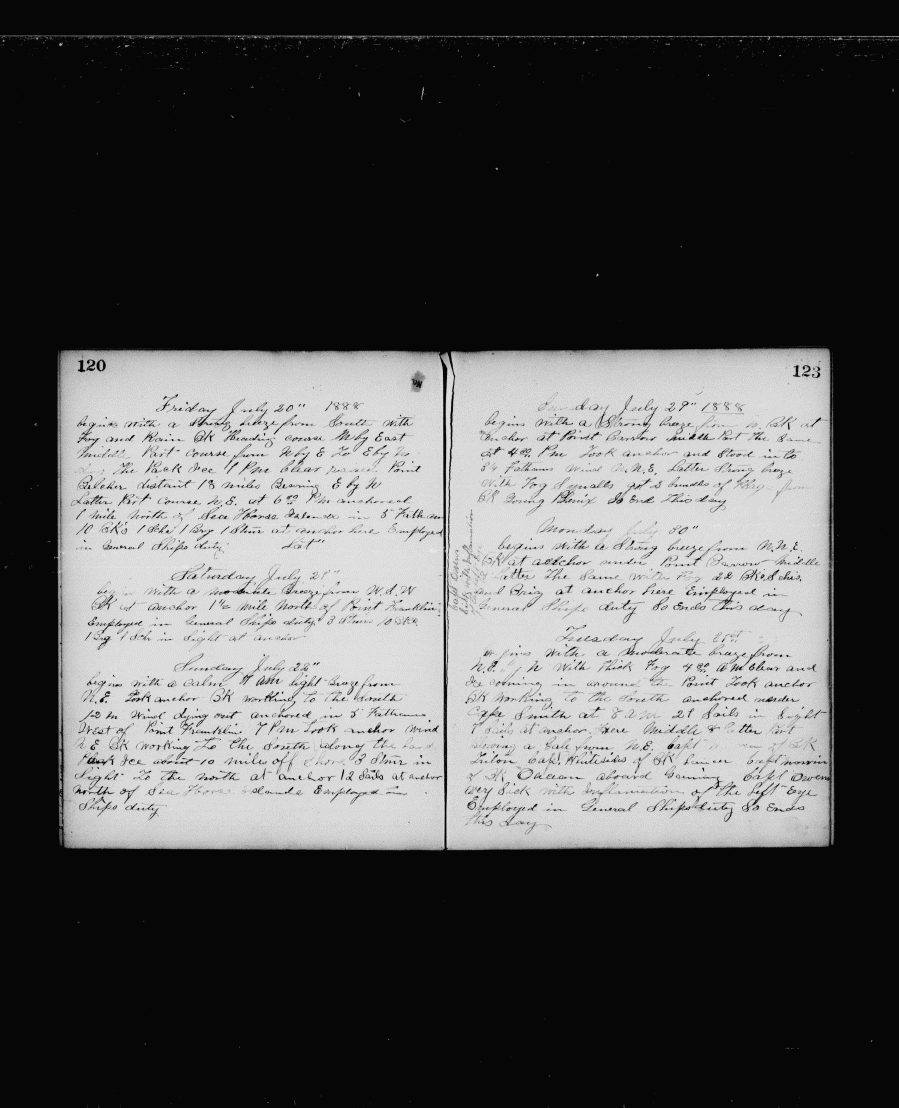 120
Friday July 20" 1888
begins with a strong breeze from South with
Fog and Rain BK Heading course N by East
Middle Part course from N by E To E by N
The Pack Ice 1 P m clear Point
Belcher distant 13 miles Bearing E by N
Latter Part course N.E. at 6 00 P m anchored
1 mile North of Sea Horse Islands in 5 Fathoms
10 BK's 1 Schr 1 Brg 1 Stmr at anchor here Employed
in General Ships duty. Lat"
Saturday July 21"
begins with a moderate Breeze from W.S.W
BK at anchor mile North of Point Franklin
Employed in General Ships duty. 3 Stmr 10 BKs
1 Brg 1 Schr in Sight at anchor
Sunday July 22"
begins with a calm 4 am light Breeze from
N.E. Took anchor BK working to the South
12 m Wind dying out anchored in 5 Fathoms.
West of Point Franklin 7 P m Took anchor Wind
N E BK working To the South along the Land
Pack Ice about 10 mile off Shore. 3 Stmr in
Sight To the North at anchor 12 Sails at anchor
North of Sea Horse Islands Employed in
Ships duty
123
Sunday July 29" 1888
begins with a Strong breeze from N. BK at
anchor at Point Barrow middle Part the Same
at 4 00 P m Took anchor and Stood in to
3 4 Fathoms Wind N.N.E. Latter Strong breeze
With Fog Squalls got 5 bundles of from
BK So End This day
Monday July 30"
begins With a Strong breeze from N.N.E.
BK at anchor under Point Barrow Middle
Latter The Same With Fog 22 BKs & Schs.
and Brig at anchor here Employed in
General Ships duty So Ends This day
Capt Owens
Tuesday July 31st
begins With a moderate breeze from
N.E. by N With Thick Fog 4 30 A m Clear and
Ice coming in around the Point Took anchor
BK Working to the South anchored under
Cape Smith at 8 A m 21 Sails in Sight
7 Sails at anchor here Middle & latter Part
a Gale from N.E. Capt of BK
Triton Capt. Whitesides of BK Capt
of BK aboard Gaming Capt Owens
very Sick with Inflamation of the Left Eye
Employed in General Ships duty So Ends
this day